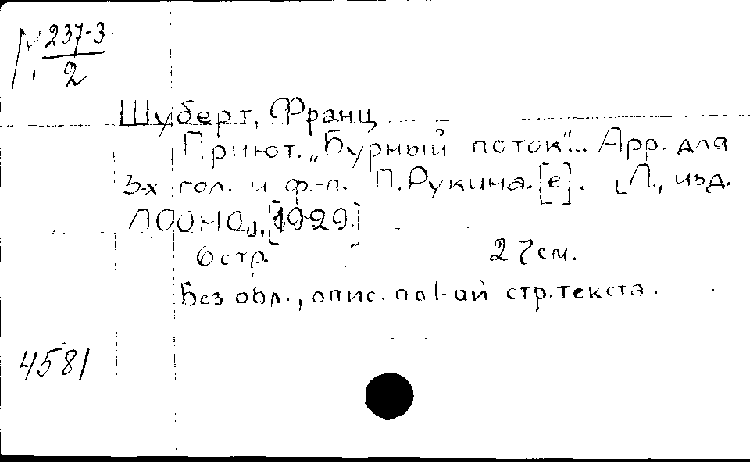 М 237-3
2
Шуберт, Франц
Приют. „Бурный поток"... Арр. для
3-х гол. и ф.-п. П. Рукина. [е]. [Л., изд.
ЛООМО], [1929.]
6 стр. 27 см.
Без обл., опис. по 1-ой стр. текста.
4581